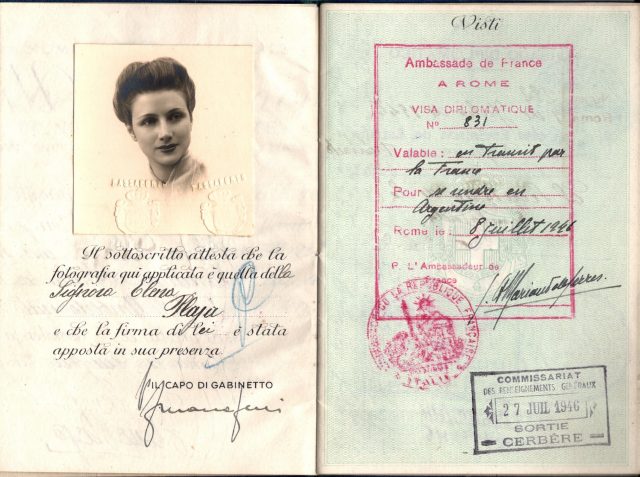 Il sottoscritto attesta che la
fotografia qui applicata è quella della
Signora Elena
Plaja
e che la firma di lei è stata
apposta in sua presenza
IL CAPO DI GABINETTO
Visti
Ambassade de France
A ROME
VISA DIPLOMATIQUE
N° 831
Valable : en transit par
la France
Pour se rendre en
Argentine
Rome le : 8 juillet 1946
P. L'Ambassadeur de
France
COMMISSARIAT
DES RENSEIGNEMENTS GÉNÉRAUX
27 JUIL 1946
SORTIE
CERBÈRE